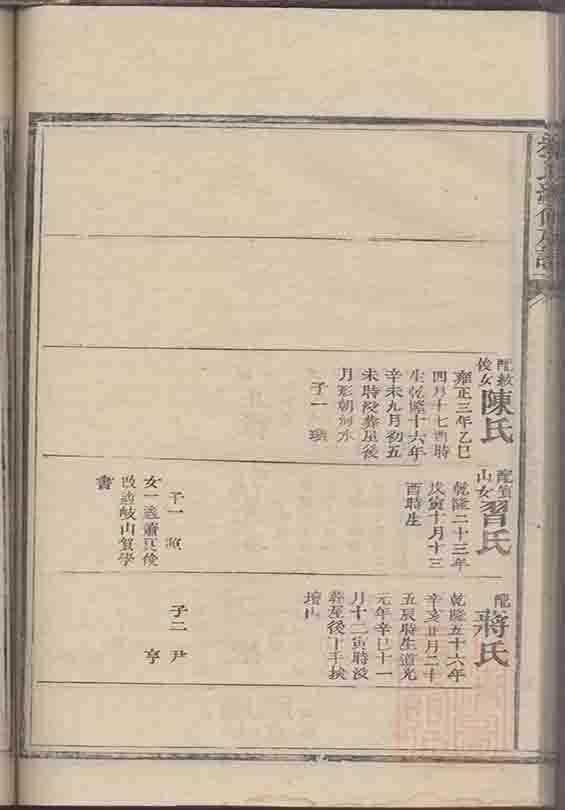 配敘
俊女
陳氏
雍正三年乙巳
四月十七酉時
生乾隆十六年
辛未九月初五
未時沒葬屋後
月形朝向水
子一
配
山女
習氏
乾隆二十三年
戊寅十月十三
酉時生
子一
女一適蕭
俊
改適岐山賀學
書
配
蔣氏
乾隆五十六年
辛亥
月二十
五辰時生道光
元年辛巳十一
月十二寅時沒
葬屋後
山
子二
尹
亨